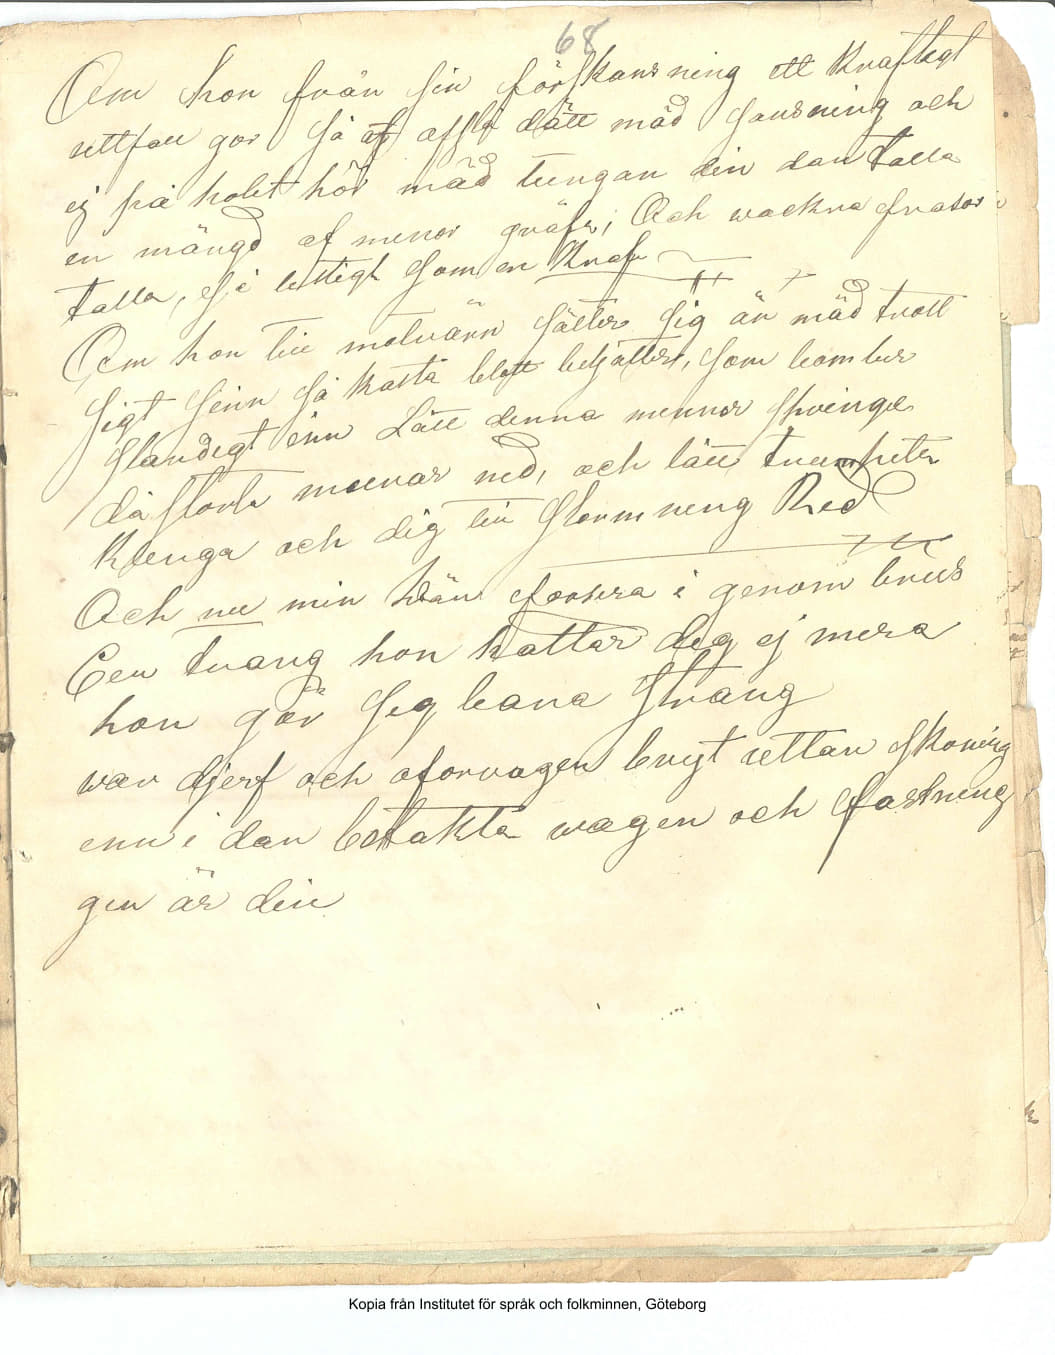 68
Om hon från sin förskansning ett kraftigt
uttfall gor så affla dätt mäd sansning och
ej på holet hör mäd tungan din dan talla
en mängd af minor gräfv; Och wackra frasor
talla, så listigt som en Kraf
Om hon till motvärn sätter sig än mäd trott
sigt sinn så kasta blott butjätter, som bomber
standigt inn Lått denna minnor springa
då storta murar ned, och lått trumpeter
klinga och dig till stormning Red
Och nu min Wän forsera i genom brus
Een trang hon hattar deg ej mera
hon gör sig bara strang
war djerf och oforvagen bryt uttan skoning
enn i dan bettakta wagen och fastning
gen är din
Kopia från Institutet för språk och folkminnen, Göteborg